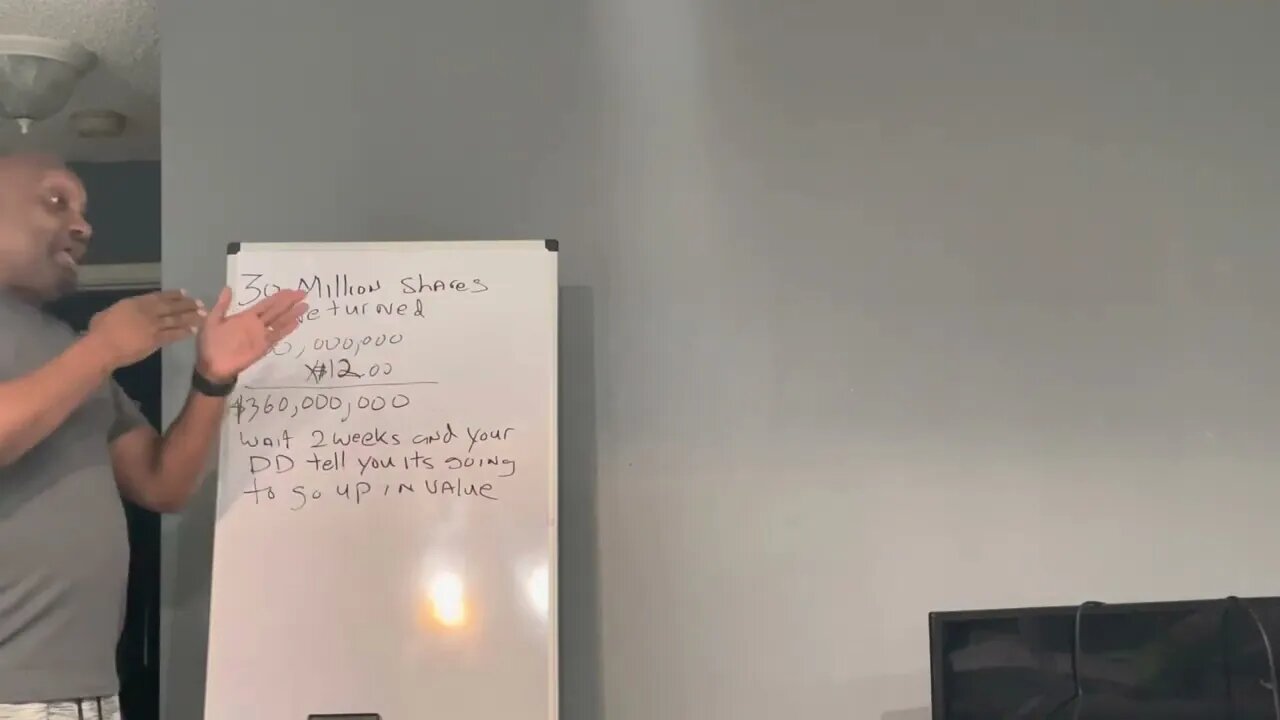 30 Million Shares
eturned
0,000,000
X$12.00
$360,000,000
Wait 2 weeks and your
DD tell you its going
to go up in value